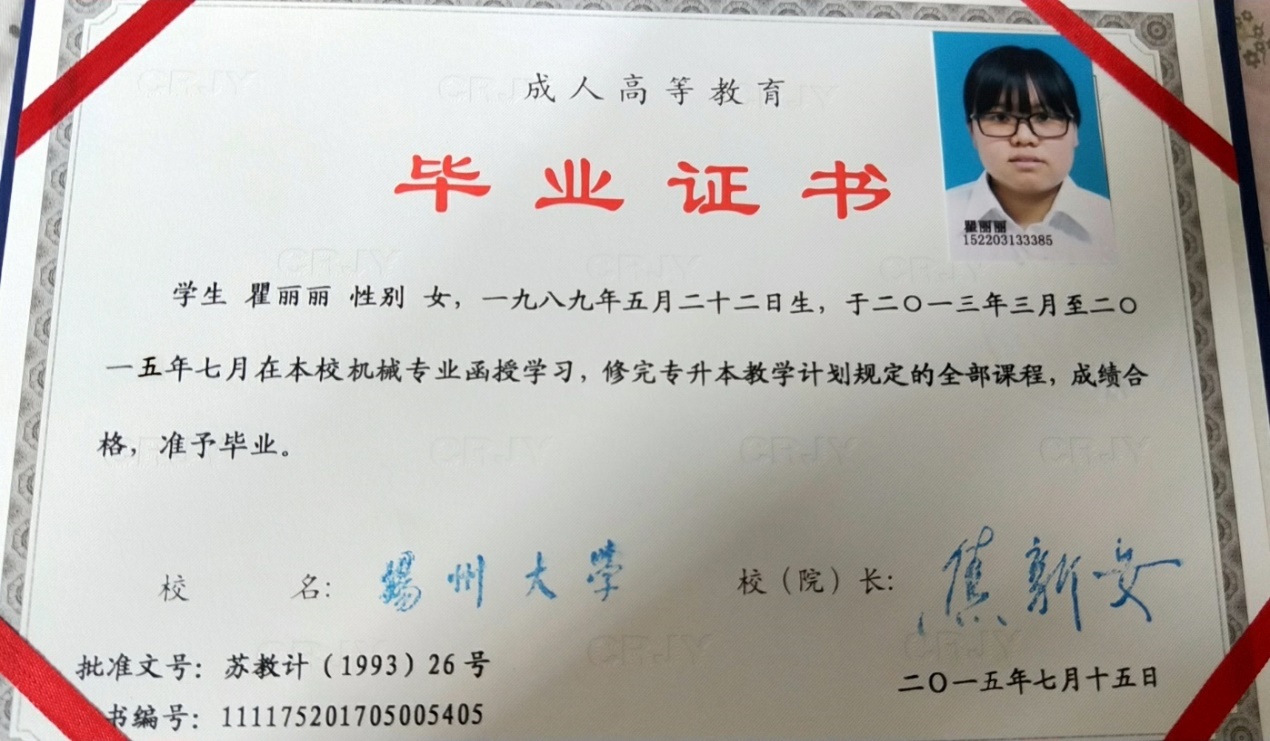 成人高等教育
毕业证书
瞿丽丽
152203133385
学生 瞿丽丽 性别 女，一九八九年五月二十二日生，于二〇一三年三月至二〇
一五年七月在本校机械专业函授学习，修完专升本教学计划规定的全部课程，成绩合
格，准予毕业。
校 名： 扬州大学 校（院）长： 焦新安
批准文号：苏教计（1993）26号
二〇一五年七月十五日
书编号：111175201705005405